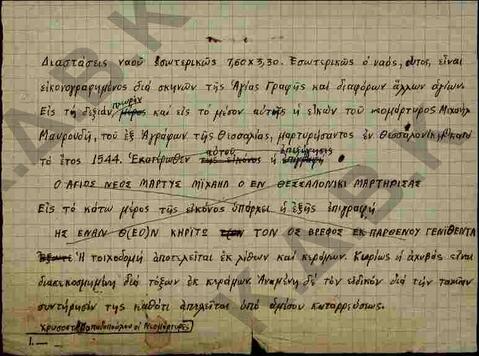 Διαστάσεις ναοῦ ἐσωτερικῶς 7,60 x 3,30. Ἐσωτερικῶς ὁ ναός, οὗτος, εἶναι
εἰκονογραφημένος διά σκηνῶν τῆς Ἁγίας Γραφῆς καί διαφόρων ἄλλων ἁγίων.
πλευράν
Εἰς τή δεξιάν, μέρος καί εἰς τό μέσον αὐτῆς ἡ εἰκών τοῦ νεομάρτυρος Μιχαήλ
Μαυρουδῆ, τοῦ ἐξ Ἀγράφων τῆς Θεσσαλίας, μαρτυρήσαντος ἐν Θεσσαλονίκῃ
αὐτοῦ ἐπεξήγησις
τό ἔτος 1544. Ἑκατέρωθεν τῆς εἰκόνος ἡ ἐπιγραφή
Ο ΑΓΙΟΣ ΝΕΟΣ ΜΑΡΤΥΣ ΜΙΧΑΗΛ Ο ΕΝ ΘΕΣΣΑΛΟΝΙΚΙ ΜΑΡΤΗΡΙΣΑΣ
Εἰς τό κάτω μέρος τῆς εἰκόνος ὑπάρχει ἡ ἑξῆς ἐπιγραφή
ΗΣ ΕΝΑΝ Θ(ΕΟ)Ν ΚΗΡΙΤΩ ΤΟΝ ΟΣ ΒΡΕΦΟΣ ΕΚ ΠΑΡΘΕΝΟΥ ΓΕΝΙΘΕΝΤΑ
Ἡ τοιχοδομή ἀποτελεῖται ἐκ λίθων καί κεράμων. Κυρίως ἡ ἀχυβάς εἶναι
διακεκοσμημένη διά τόξων ἐκ κεράμων. Ἀναμένη δέ τόν εἰδικόν διά τήν ταχεῖαν
συντήρησίν της καθότι ἀπειλεῖται ὑπό ἀμέσου καταρρεύσεως.
Χρυσοστ. Παπαδοπούλου οἱ Νεομάρτυρες
1. —
Κ.Α.Β.Κ
Κ.Α.Β.Κ